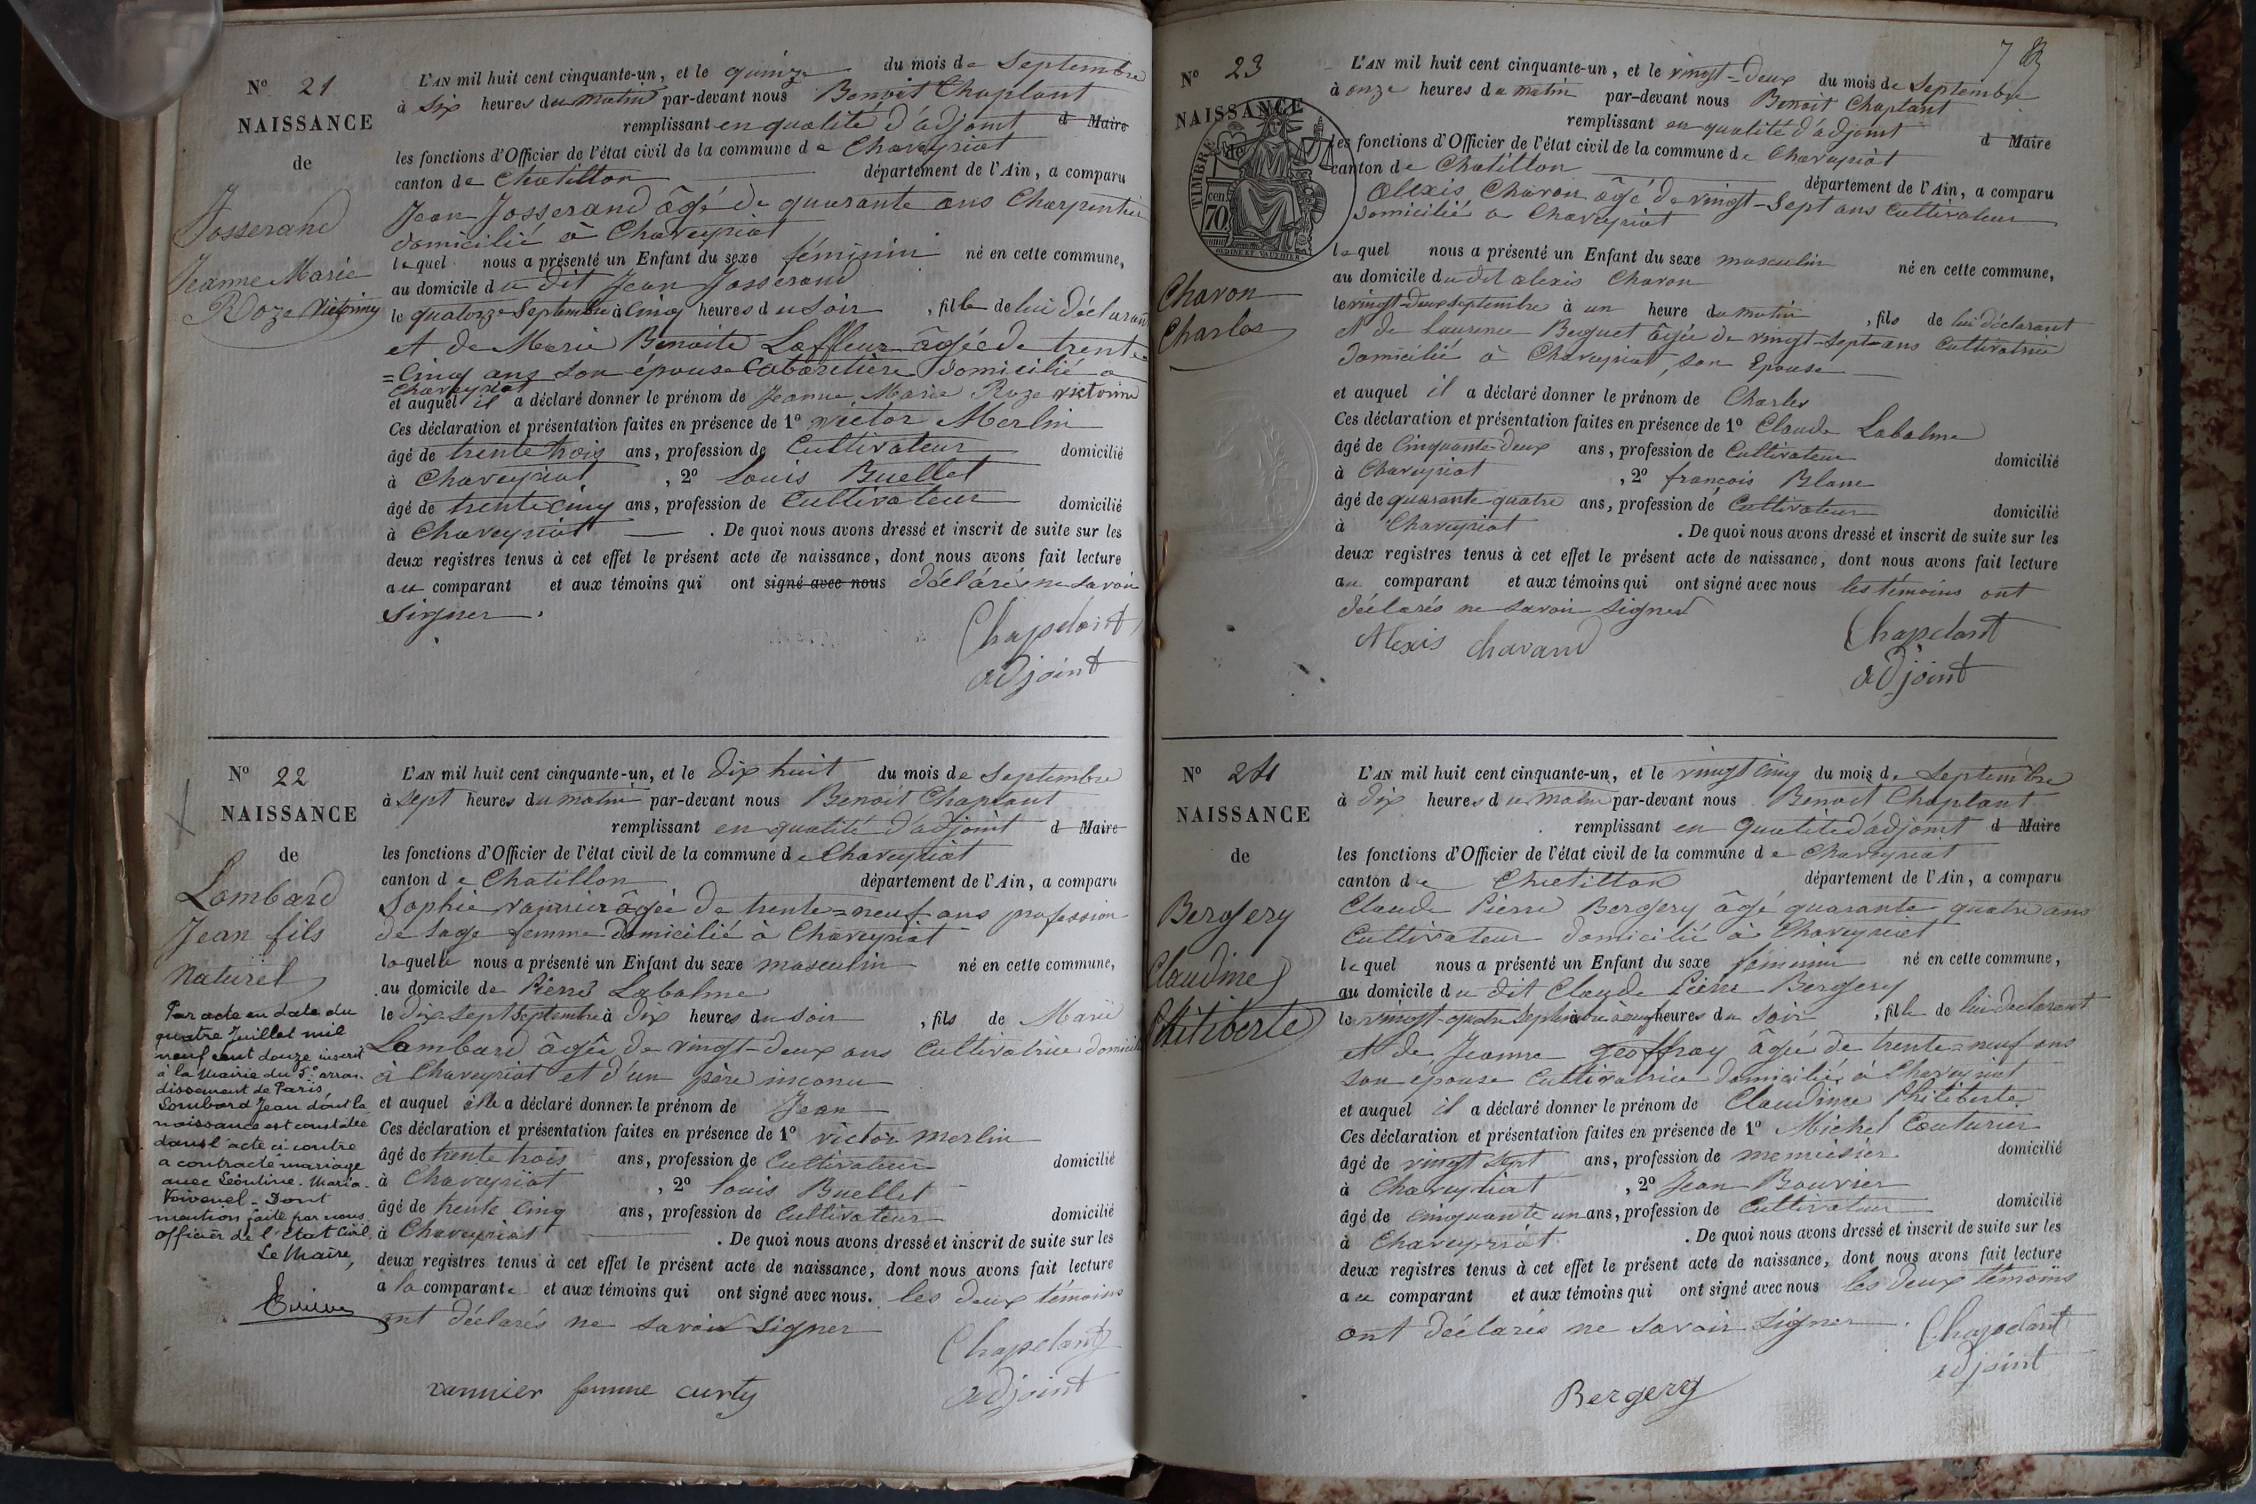 N° 21
NAISSANCE
de
Josserand
Jeanne Marie
Roze Victorine
L'AN mil huit cent cinquante-un, et le quinze du mois de Septembre
à six heures du matin par-devant nous Benoit Chaplant
remplissant en qualité d'adjoint d Maire
les fonctions d'Officier de l'état civil de la commune de Chaveyriat
canton de Chatillon département de l'Ain, a comparu
Jean Josserand âgé de quarante ans Charpentier
domicilié à Chaveyriat
lequel nous a présenté un Enfant du sexe féminin né en cette commune,
au domicile du dit Jean Josserand
le quatorze Septembre à cinq heures du soir, fille de lui déclarant
et de Marie Benoite Laffleur âgée de trente
=cinq ans son épouse Cabaretière domicilié a
Chaveyriat
et auquel il a déclaré donner le prénom de Jeanne Marie Roze victorine
Ces déclaration et présentation faites en présence de 1° victor Merlin
âgé de trente trois ans, profession de Cultivateur domicilié
à Chaveyriat, 2° Louis Buellet
âgé de trente cinq ans, profession de Cultivateur domicilié
à Chaveyriat. De quoi nous avons dressé et inscrit de suite sur les
deux registres tenus à cet effet le présent acte de naissance, dont nous avons fait lecture
au comparant et aux témoins qui ont signé avec nous déclarés ne savoir
signer.
Chapelant
adjoint
N° 22
NAISSANCE
de
Lombard
Jean fils
naturel
Par acte en date du
quatre Juillet mil
neuf cent douze inscrit
à la Mairie du 5e arron-
dissement de Paris
Lombard Jean dont la
naissance est constatée
dans l'acte ci-contre
a contracté mariage
avec Léontine-Maria-
Voivenel - Dont
mention faite par nous
officier de l'Etat Civil,
Le Maire,
L'AN mil huit cent cinquante-un, et le dix huit du mois de Septembre
à sept heures du matin par-devant nous Benoit Chaplant
remplissant en qualité d'adjoint d Maire
les fonctions d'Officier de l'état civil de la commune de Chaveyriat
canton de Chatillon département de l'Ain, a comparu
Sophie vannier âgée de trente=neuf ans profession
de sage femme domicilié à Chaveyriat
laquelle nous a présenté un Enfant du sexe masculin né en cette commune,
au domicile de Pierre Labalme
le dix-sept Septembre à dix heures du soir, fils de Marie
Lombard âgée de vingt-deux ans Cultivatrice domicilié
à Chaveyriat et d'un père inconu
et auquel elle a déclaré donner le prénom de Jean
Ces déclaration et présentation faites en présence de 1° victor merlin
âgé de trente trois ans, profession de Cultivateur domicilié
à Chaveyriat, 2° Louis Buellet
âgé de trente cinq ans, profession de Cultivateur domicilié
à Chaveyriat. De quoi nous avons dressé et inscrit de suite sur les
deux registres tenus à cet effet le présent acte de naissance, dont nous avons fait lecture
a la comparante et aux témoins qui ont signé avec nous. les deux témoins
ont déclarés ne savoir signer
Chapelant
adjoint
vannier femme curty
7
N° 23
NAISSANCE
de
TIMBRE
70 cen.
Chavon
Charles
L'AN mil huit cent cinquante-un, et le vingt-deux du mois de Septembre
à onze heures du matin par-devant nous Benoit Chaplant
remplissant en qualité d'adjoint d Maire
les fonctions d'Officier de l'état civil de la commune de Chaveyriat
canton de Chatillon département de l'Ain, a comparu
Alexis Chavon âgé de vingt-sept ans Cultivateur
domicilié a Chaveyriat
lequel nous a présenté un Enfant du sexe masculin né en cette commune,
au domicile du dit alexis Chavon
le vingt-deux septembre à un heure du matin, fils de lui déclarant
et de Laurence Beguet âgée de vingt-sept ans Cultivatrice
domicilié à Chaveyriat, son Epouse
et auquel il a déclaré donner le prénom de Charles
Ces déclaration et présentation faites en présence de 1° Claude Labalme
âgé de Cinquante-deux ans, profession de Cultivateur domicilié
à Chaveyriat, 2° françois Blanc
âgé de quarante quatre ans, profession de Cultivateur domicilié
à Chaveyriat. De quoi nous avons dressé et inscrit de suite sur les
deux registres tenus à cet effet le présent acte de naissance, dont nous avons fait lecture
au comparant et aux témoins qui ont signé avec nous les témoins ont
déclarés ne savoir signer
Alexis chavand
Chapelant
adjoint
N° 24
NAISSANCE
de
Bergery
Claudine
Philiberte
L'AN mil huit cent cinquante-un, et le vingt cinq du mois de Septembre
à dix heures du matin par-devant nous Benoit Chaplant
remplissant en qualité d'adjoint d Maire
les fonctions d'Officier de l'état civil de la commune de Chaveyriat
canton de Chatillon département de l'Ain, a comparu
Claude Pierre Bergery âgé quarante quatre ans
Cultivateur domicilié à Chaveyriat
lequel nous a présenté un Enfant du sexe féminin né en cette commune,
au domicile du dit Claude Pierre Bergery
le vingt-quatre Septembre à heures du soir, fille de lui déclarant
et de Jeanne Geoffray âgée de trente=neuf ans
son epouse Cultivatrice domiciliée à Chaveyriat
et auquel il a déclaré donner le prénom de Claudine Philiberte
Ces déclaration et présentation faites en présence de 1° Michel Couturier
âgé de vingt sept ans, profession de menuisier domicilié
à Chaveyriat, 2° Jean Bouvier
âgé de cinquante un ans, profession de Cultivateur domicilié
à Chaveyriat. De quoi nous avons dressé et inscrit de suite sur les
deux registres tenus à cet effet le présent acte de naissance, dont nous avons fait lecture
au comparant et aux témoins qui ont signé avec nous les deux témoins
ont déclarés ne savoir signer.
Chapelant
adjoint
Bergery